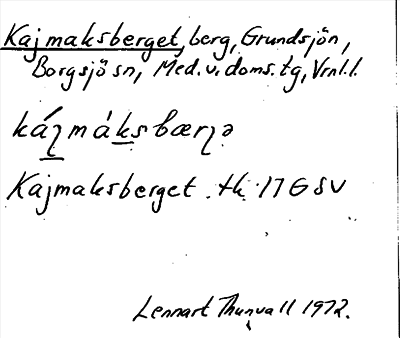 Kajmaksberget, berg, Grundsjön,
Borgsjö sn, Med. v. doms. tg, Vrnl. l.
káʅmáksbærʅə
Kajmaksberget tk 17 G SV
Lennart Thunvall 1972.